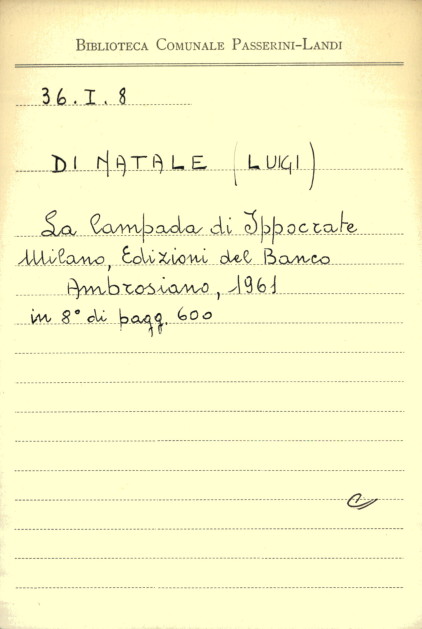 BIBLIOTECA COMUNALE PASSERINI-LANDI
36. I. 8
DI NATALE (LUIGI)
La lampada di Ippocrate
Milano, Edizioni del Banco
Ambrosiano, 1961
in 8° di pagg. 600